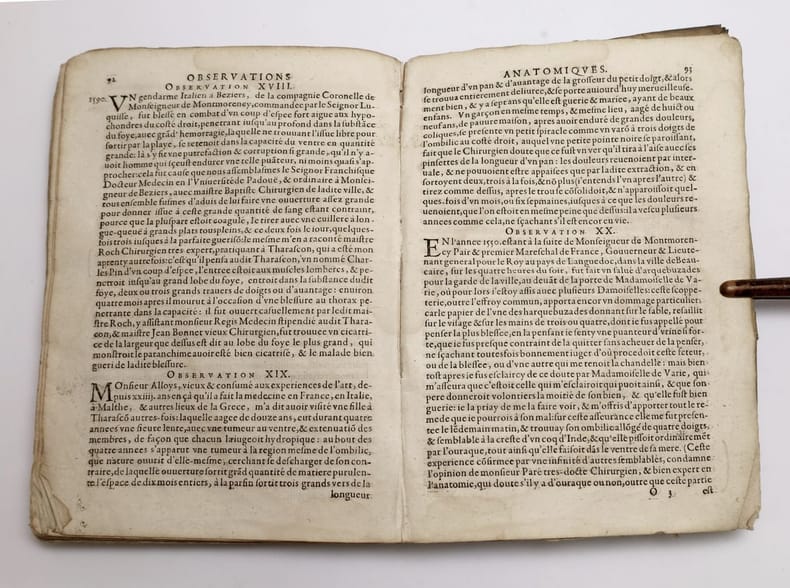 92 OBSERVATIONS
OBSERVATION XVIII.
1590. VN gendarme Italien à Beziers, de la compagnie Coronelle de
Monseigneur de Montmorency, commandee par le Seignor Lu-
quisse, fut blessé en combat d'un coup d'espee fort aigue aux hypo-
chondres du costé droit, penetrant iusqu'au profond dans la substãce
du foye, auec grãd' hemorragie, laquelle ne trouuant l'issue libre pour
sortir par la playe, se retenoit dans la capacité du ventre en quantité
grande: là s'y fit vne putrefaction & corruption si grande, qu'il n'y a-
uoit homme qui sceust endurer vne telle puãteur, ni moins quasi s'ap-
procher: cela fut cause que nous assemblasmes le Seignor Franchisque
Docteur Medecin en l'Vniuersité de Padoüe, & ordinaire à Monsei-
gneur de Beziers, auec maistre Baptiste Chirurgien de ladite ville, &
tous ensemble fusmes d'aduis de lui faire vne ouuerture assez grande
pour donner issue à ceste grande quantité de sang estant contraint,
pource que la pluspart estoit coagulé, le tirer auec vne cuillere à lon-
gue-queue à grands plats tous pleins, & ce deux fois le iour, quelques-
fois trois iusques à la parfaite guerisõ: le mesme m'en a raconté maistre
Roch Chirurgien tres expert, pratiquant à Tharascon, qui a esté mon
aprenty autresfois: c'est qu'il pensa audit Tharascon, vn nommé Char-
les Pin d'vn coup d'espee, l'entree estoit aux muscles lomberes, & pe-
netroit iusqu'au grand lobe du foye, entroit dans la substance dudit
foye, deux ou trois grands trauers de doigts ou d'auantage: enuiron
quatre mois apres il mourut à l'occasion d'vne blessure au thorax pe-
netrante dans la capacité: il fut ouuert casuellement par ledit mai-
stre Roch, y assistant monsieur Regis Medecin stipendié audit Thara-
con, & maistre Iean Bonnet vieux Chirurgien, fut trouuee vn cicatri-
ce de la largeur que dessus est dit au lobe du foye le plus grand, qui
monstroit le paranchime auoir esté bien cicatrisé, & le malade bien
gueri de ladite blessure.
OBSERVATION XIX.
MOnsieur Alloys, vieux & consumé aux experiences de l'art, de-
puis xxiiij. ans en çà qu'il a fait la medecine en France, en Italie,
à Malthe, & autres lieux de la Grece, m'a dit auoir visité vne fille à
Tharascõ autres-fois: laquelle aagee de douze ans, eut durant quatre
annees vne fieure lente, auec vne tumeur au ventre, & extenuatiõ des
membres, de façon que chacun la iugeoit hydropique: au bout des
quatre annees s'apparut vne tumeur à la region mesme de l'ombilic,
que nature ouurit d'elle-mesme, cerchant se descharger de son con-
traire, de laquelle ouuerture sortit grãd quantité de matiere purulen-
te l'espace de dix mois entiers, à la parfin sortit trois grands vers de la
longueur
ANATOMIQVES. 93
longueur d'vn pan & d'auantage de la grosseur du petit doigt, & alors
se trouua entierement deliuree, & se porte auiourd'huy merueilleuse-
ment bien, & y a sept ans qu'elle est guerie & mariee, ayant de beaux
enfans. Vn garçon en mesme temps, & mesme lieu, aagé de huict ou
neuf ans, de pauure maison, apres auoir enduré de grandes douleurs,
coliques, se presente vn petit spiracle comme vn varõ à trois doigts de
l'ombilic au costé droit, auquel vne petite pointe noire se paroissant,
fait que le Chirurgien doute que ce fust vn ver qu'il tira à l'aise auec ses
pinsettes de la longueur d'vn pan: les douleurs reuenoient par inter-
uale, & ne pouuoient estre appaisees que par ladite extraction, & en
sortoyent deux, trois à la fois, & nõ plus (i'entends l'vn apres l'autre) &
tirez comme dessus, apres le trou se cõsolidoit, & n'apparoissoit quel-
ques-fois d'vn mois, ou six sepmaines, iusques à ce que les douleurs re-
uenoient, que l'on estoit en mesme peine que dessus: il a vescu plusieurs
annees comme cela, ne sçachant s'il est encor en vie.
OBSERVATION XX.
EN l'annee 1550. estant à la suite de Monseigneur de Montmoren-
cy Pair & premier Mareschal de France, Gouuerneur & Lieute-
nant general pour le Roy au pays de Languedoc, dans la ville de Beau-
caire, sur les quatre heures du soir, fut fait vn salue d'arquebuzades
pour la garde de la ville, au deuãt de la porte de Madamoiselle de Va-
rie, où pour lors i'estoy assis auec plusieurs Damoiselles: ceste scoppe-
terie, outre l'effroy commun, apporta encor vn dommage particulier:
car le papier de l'vne des harquebuzades donnant sur le sable, resaillit
sur le visage & sur les mains de trois ou quatre, dont ie fus appelé pour
penser la plus blessee, en la pensant ie senty vne puanteur d'vrine si for-
te, que ie fus presque contraint de la quitter sans acheuer de la penser,
ne sçachant toutesfois bonnement iuger d'où procedoit ceste feteur,
ou de la blessee, ou d'vne autre qui me tenoit la chandelle: mais bien-
tost apres ie fus esclaircy de ce doute par Madamoiselle de Varie, qui
m'asseura que c'estoit celle qui m'esclairoit qui puoit ainsi, & que son
pere donneroit volontiers la moitié de son bien, & qu'elle fust bien
guerie: ie la priay de me la faire voir, & m'offris d'apporter tout le re-
mede que ie pourrois à son mal: sur ceste asseurance elle me fut presen-
tee le lẽdemain matin, & trouuay son ombilic allõgé de quatre doigts,
& semblable à la creste d'vn coq d'Inde, & qu'elle pissoit ordinairemẽt
par l'ouraque, tout ainsi qu'elle faisoit dãs le ventre de sa mere. (Ceste
experience cõfirmee par vne infinité d'autres semblables, condamne
l'opinion de monsieur Paré tres-docte Chirurgien, & bien expert en
l'anatomie, qui doute s'il y a d'ouraque ou non, outre que ceste partie
O 3 est